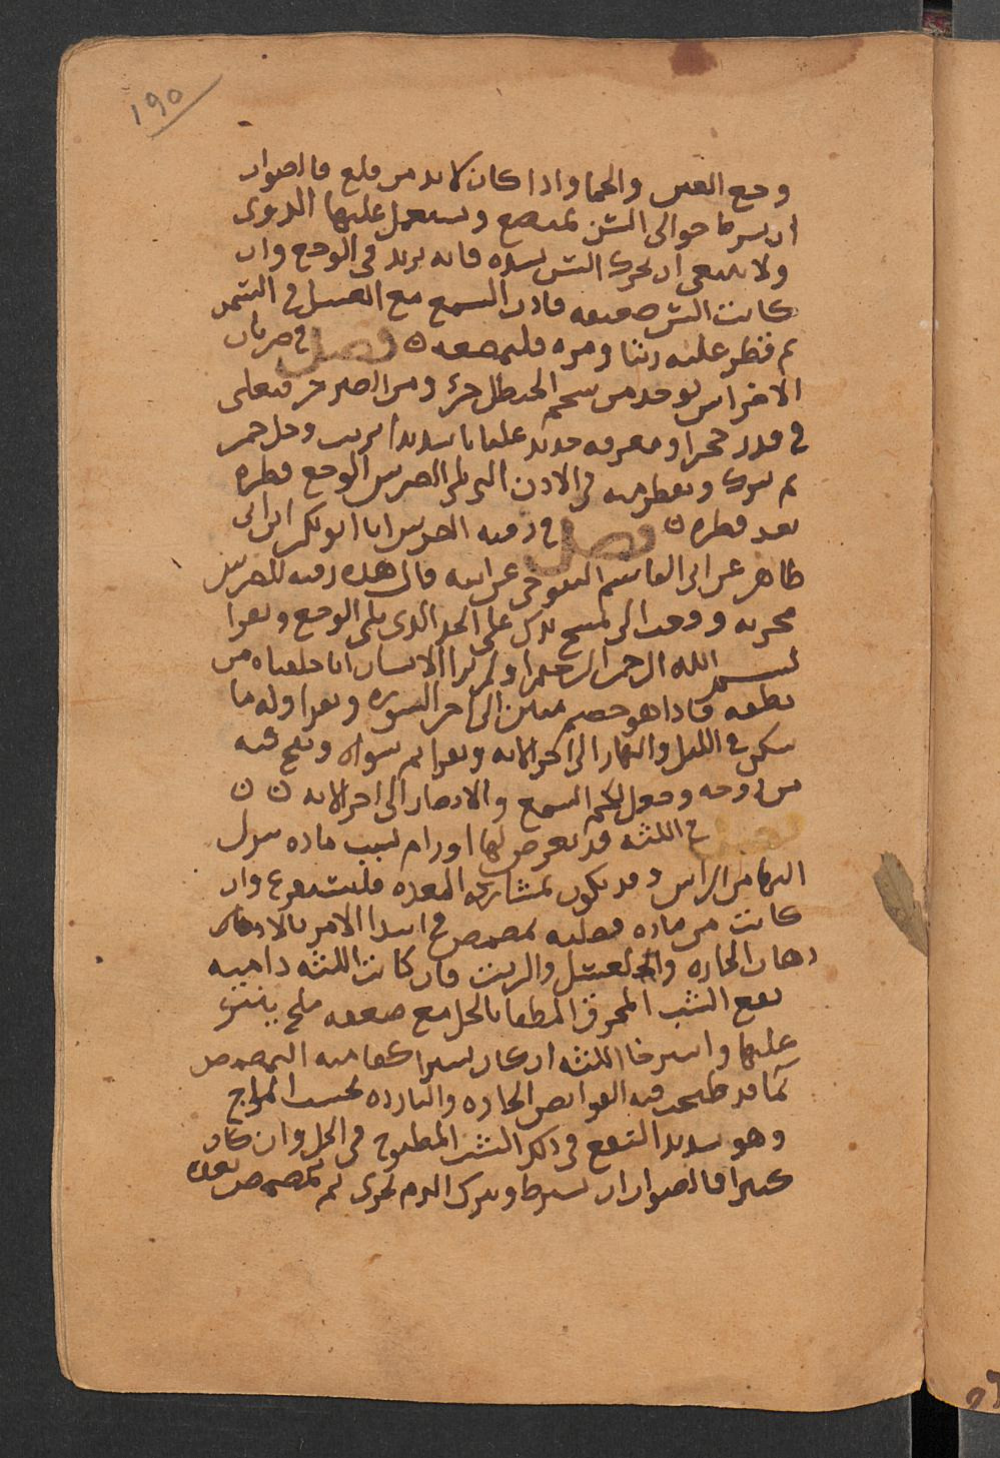 ١٩٥
وجع العين والحما واذا كان لابد من قلع فالصواب
ان يشرط حوالى السن بمبضع ويستعمل عليها الدوى
ولا ينبغى ان يحرك السن بشده فانه يزيد فى الوجع وان
كانت السن ضعيفه فاذن الشمع مع العسل فى الشمس
ثم قطر عليه زيتا ومره فليمضغه ه فصل فى ضربان
الاضراس يوخذ من شحم الحنظل جزء ومن الصبر جز فيغلى
فى قدر حجر او مغرفه حديد غليانا شديدا بزيت وخل خمر
ثم يترك ويقطر منه فى الاذن التى تلى الضرس الوجع قطره
بعد قطره ه فصل فى رقيه الضرس انا ابو بكر ابن ابى
طاهر عن ابى القاسم التنوخى عن ابيه قال هذه رقيه للضرس
مجربه ووقعت الى تمسح يدك على الخد الذى يلى الوجع وتقرا
بسم الله الرحمن الرحيم اولم ير الانسان انا خلقناه من
نطفه فاذا هو خصيم مبين الى اخر السوره وتقرا وله ما
سكن فى الليل والنهار الى اخر الايه وتقرا ثم سواه ونفخ فيه
من روحه وجعل لكم السمع والابصار الى اخر الايه ن ن
فصل فى اللثه قد يعرض لها اورام بسبب ماده تنزل
اليها من الراس وقد يكون بمشاركه المعده فليستفرغ وان
كانت من ماده فضليه يمضمض فى ابتدا الامر بالاد
دهان الحاره والعسل والزيت فان كانت اللثه داميه
نفع الشب المحرق المطفا بالخل مع ضعفه ملح ينثر
عليها واسترخا اللثه ان كان يسيرا كفا فيه التمضمض
بما قد طبخت فيه القوابض الحاره والبارده بحسب المزاج
وهو شديد النفع فى ذلك الشب المطبوخ فى الخل وان كان
كثيرا فالصواب ان يشرط ويترك الدم يجرى ثم يتمضمض بعده